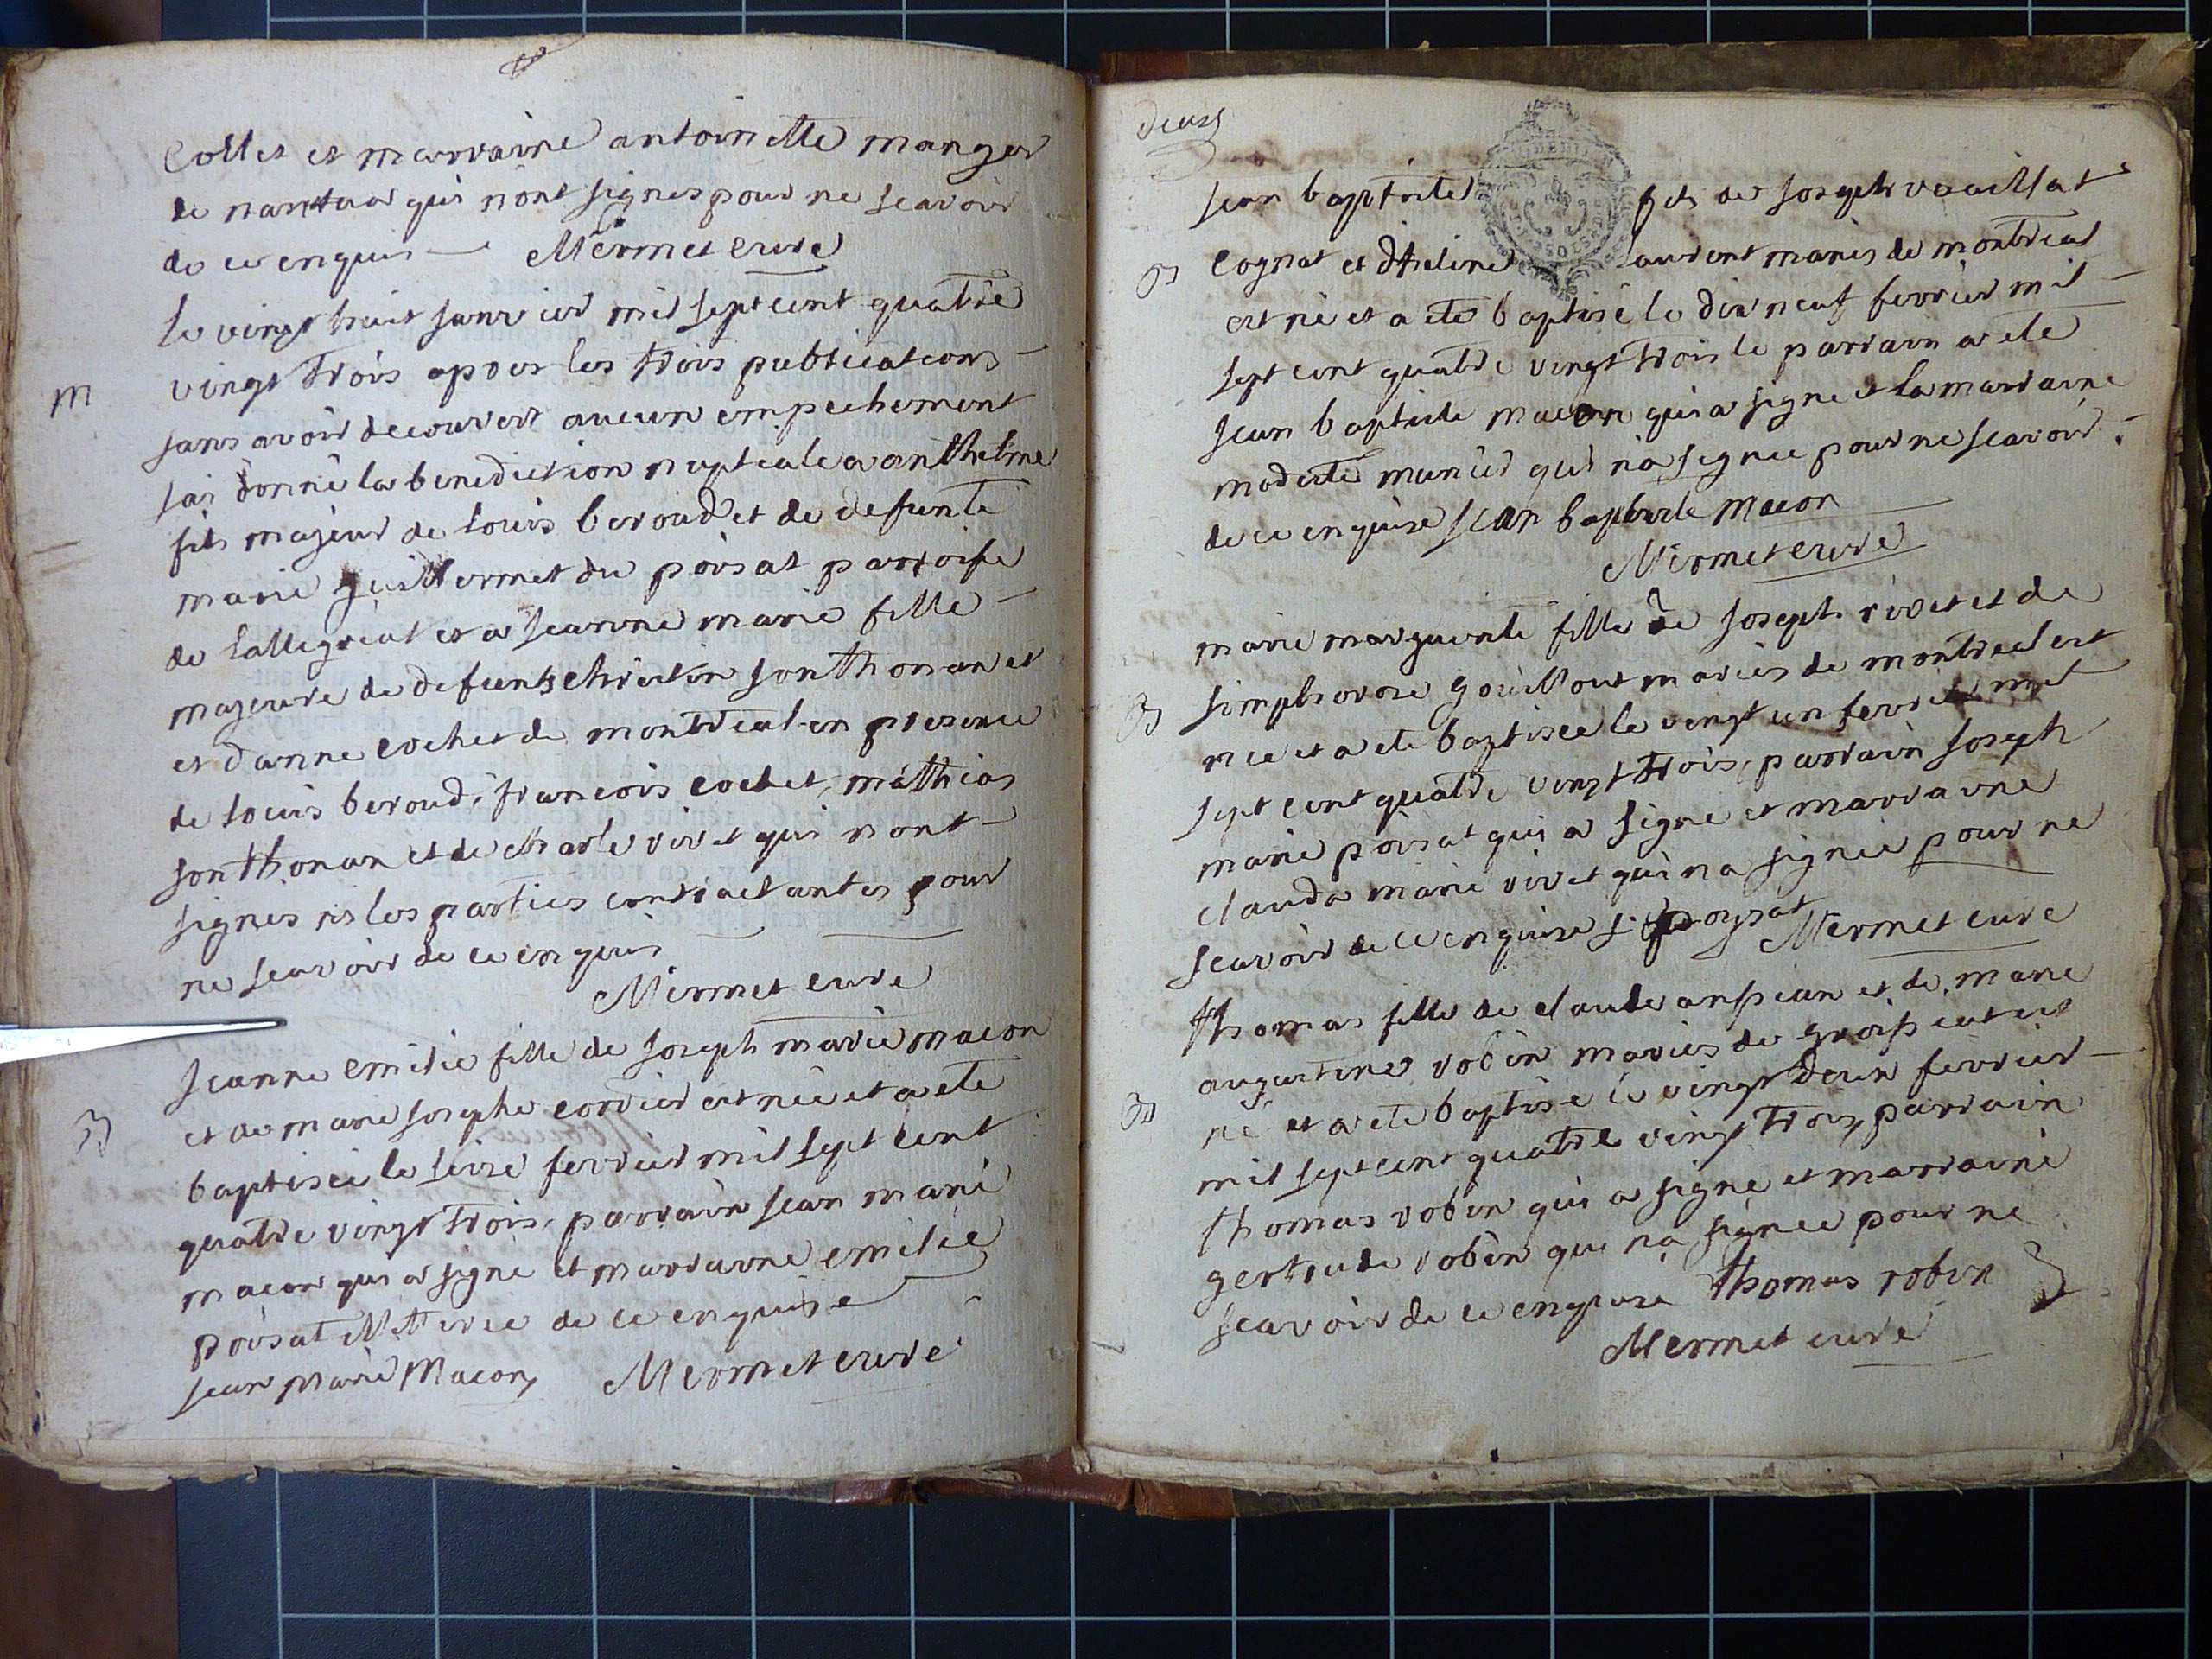 Collet et marraine antoinette manger
de nantua qui n'ont signes pour ne scavoir
de ce enquis Mermet curé
le vingt huit janvier mil sept cent quatre
M
vingt trois apres les trois publications
sans avoir decouvert aucun empechement
jai donné la benediction nuptiale a anthelme
fils majeur de louis beroud et de defunte
marie guillermet du poisat parroisse
de lalleyriat et a jeanne marie fille
majeure de defunts christin sonthonax
et danne cochet de montreal en presence
de louis beroud, francois cochet, mathias
sonthonax et de charle rivet qui nont
signés ni les parties contractantes pour
ne scavoir de ce enquis
Mermet curé
jeanne emilie fille de joseph marie macon
B
et de marie josephe corvier est née et a eté
baptisée le seize fevrier mil sept cent
quatre vingt trois, parrain jean marie
macon qui a signé et marraine emilie
poisat illiterée de ce enquise
jean marie Macon Mermet curé
deux
jean baptiste fils de joseph vuaillat
B
cognat et dheline laurent mariés de montreal
est né et a eté baptisé le dix neuf fevrier mil
sept cent quatre vingt trois le parrain a eté
jean baptiste macon qui a signé et la marraine
modeste munier qui n'a signée pour ne scavoir
de ce enquise jean baptiste macon
Mermet curé
marie marguerite fille de joseph rivet et de
B
simphorose gouilloux mariés de montreal est
née et a eté baptisée le vingt un fevrier mil
sept cent quatre vingt trois, parrain joseph
marie poisat qui a signé et marraine
clauda marie rivet qui n'a signée pour ne
scavoir de ce enquise poysat Mermet curé
thomas fille de claude anpian et de marie
augustine robin mariés de groissiat est
B
né et a eté baptisé le vingt deux fevrier
mil sept cent quatre vingt trois, parrain
thomas robin qui a signé et marraine
gertrude robin qui n'a signée pour ne
scavoir de ce enquise thomas robin
Mermet curé